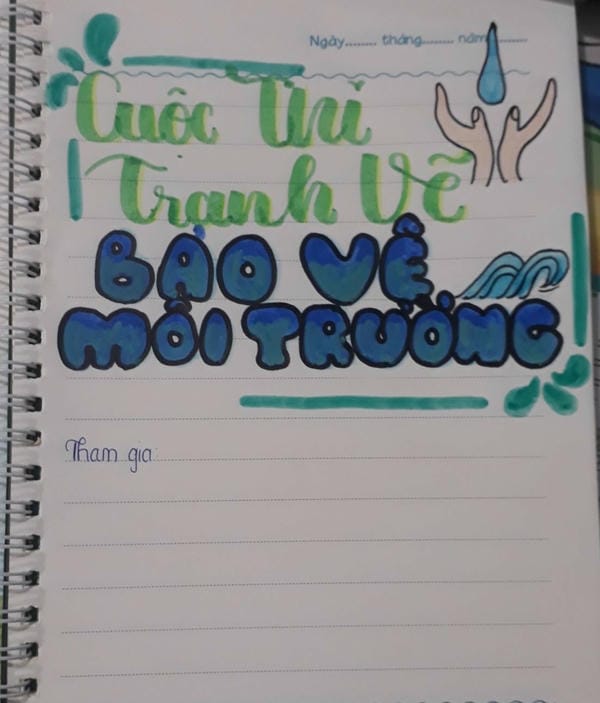 Ngày........ tháng........ năm..........
Cuộc Thi
Tranh Vẽ
BẢO VỆ
MÔI TRƯỜNG
Tham gia: